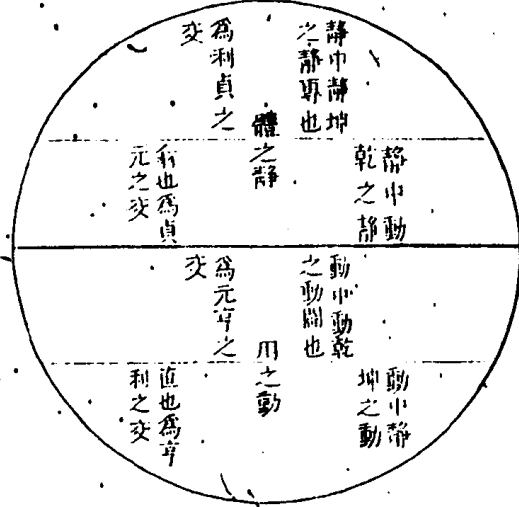 靜中靜坤
之靜專也
體之靜
爲利貞之
交
靜中動
乾之靜
翕也爲貞
元之交
動中動乾
之動闢也
用之動
爲元亨之
交
動中靜
坤之動
直也爲亨
利之交